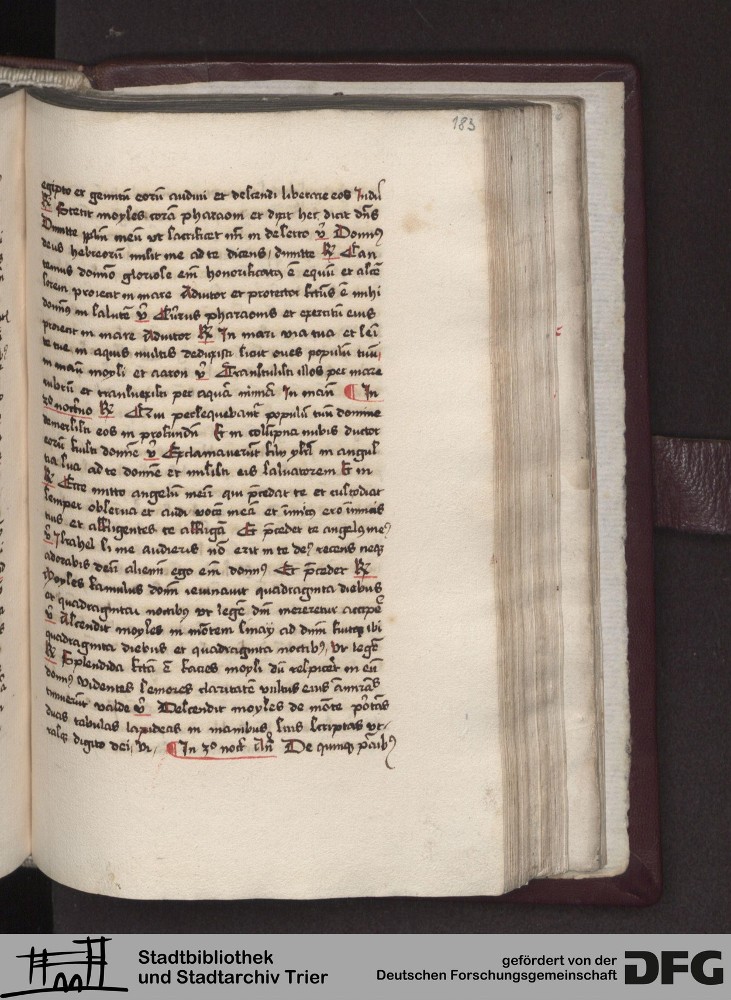 183
egipto et gemitū eorū audiui et descendi liberare eos Indil
R̷ Stetit moyses corā pharaoni et dixit hec dicit dn̄s
Dimitte pp̄lm meū vt sacrificet m̄ in deserto v̄ Domin9
deus hebreorū misit me ad te dicens dimitte R̷ Can
temus domino gloriose eni honorificatus ē equū et ascē
sorem proiecit in mare Adiutor et protector fctūs ē mihi
domin9 in salutē v̄ Currus pharaonis et exercitū eius
proiecit in mare Adiutor R̷ In mari via tua et semi
te tue in aquis multis deduxisti sicut oues populū tuū
in manu moysi et aaron v̄ Transtulisti illos per mare
rubrū et transuexisti per aquā nimiā In manu In
2o nocturno R̷ Cum persequebant populū tuū domine
demersisti eos in profundū Et in colūpna nubis ductor
eorū fuisti domine v̄ Exclamauerūt filij ysrl in angus
tia sua ad te domine et misisti eis saluatorem Et in
R̷ Ecce mitto angelū meū qui p̄cedat te et custodiat
semper obserua et audi vocē meā et inimicus ero inimicis
tuis et affligentes te affligā Et p̄cedet te angelus me9
v̄ Israhel si me audieris nō erit in te de9 recens neqȝ
adorabis deū alienū ego eni domin9 Et p̄cedet R̷
Moyses famulus domini ieiunauit quadraginta diebus
et quadraginta noctibus vt legē dni mereretur accipē
v̄ Ascendit moyses in mōtem sinay ad dnm fuitqȝ ibi
quadraginta diebus et quadraginta noctib9 vt legē
R̷ Splendida fctā ē facies moysi dū respiceret in eū
domin9 Videntes seniores claritatē vultus eius admirātes
timuerūt valde v̄ Descendit moyses de mōte portās
duas tabulas lapideas in manibus suis scriptas vt
rasqȝ digito dei Vi In 3o noct Añ De quinqȝ panib9
Stadtbibliothek
und Stadtarchiv Trier
gefördert von der
Deutschen Forschungsgemeinschaft
DFG